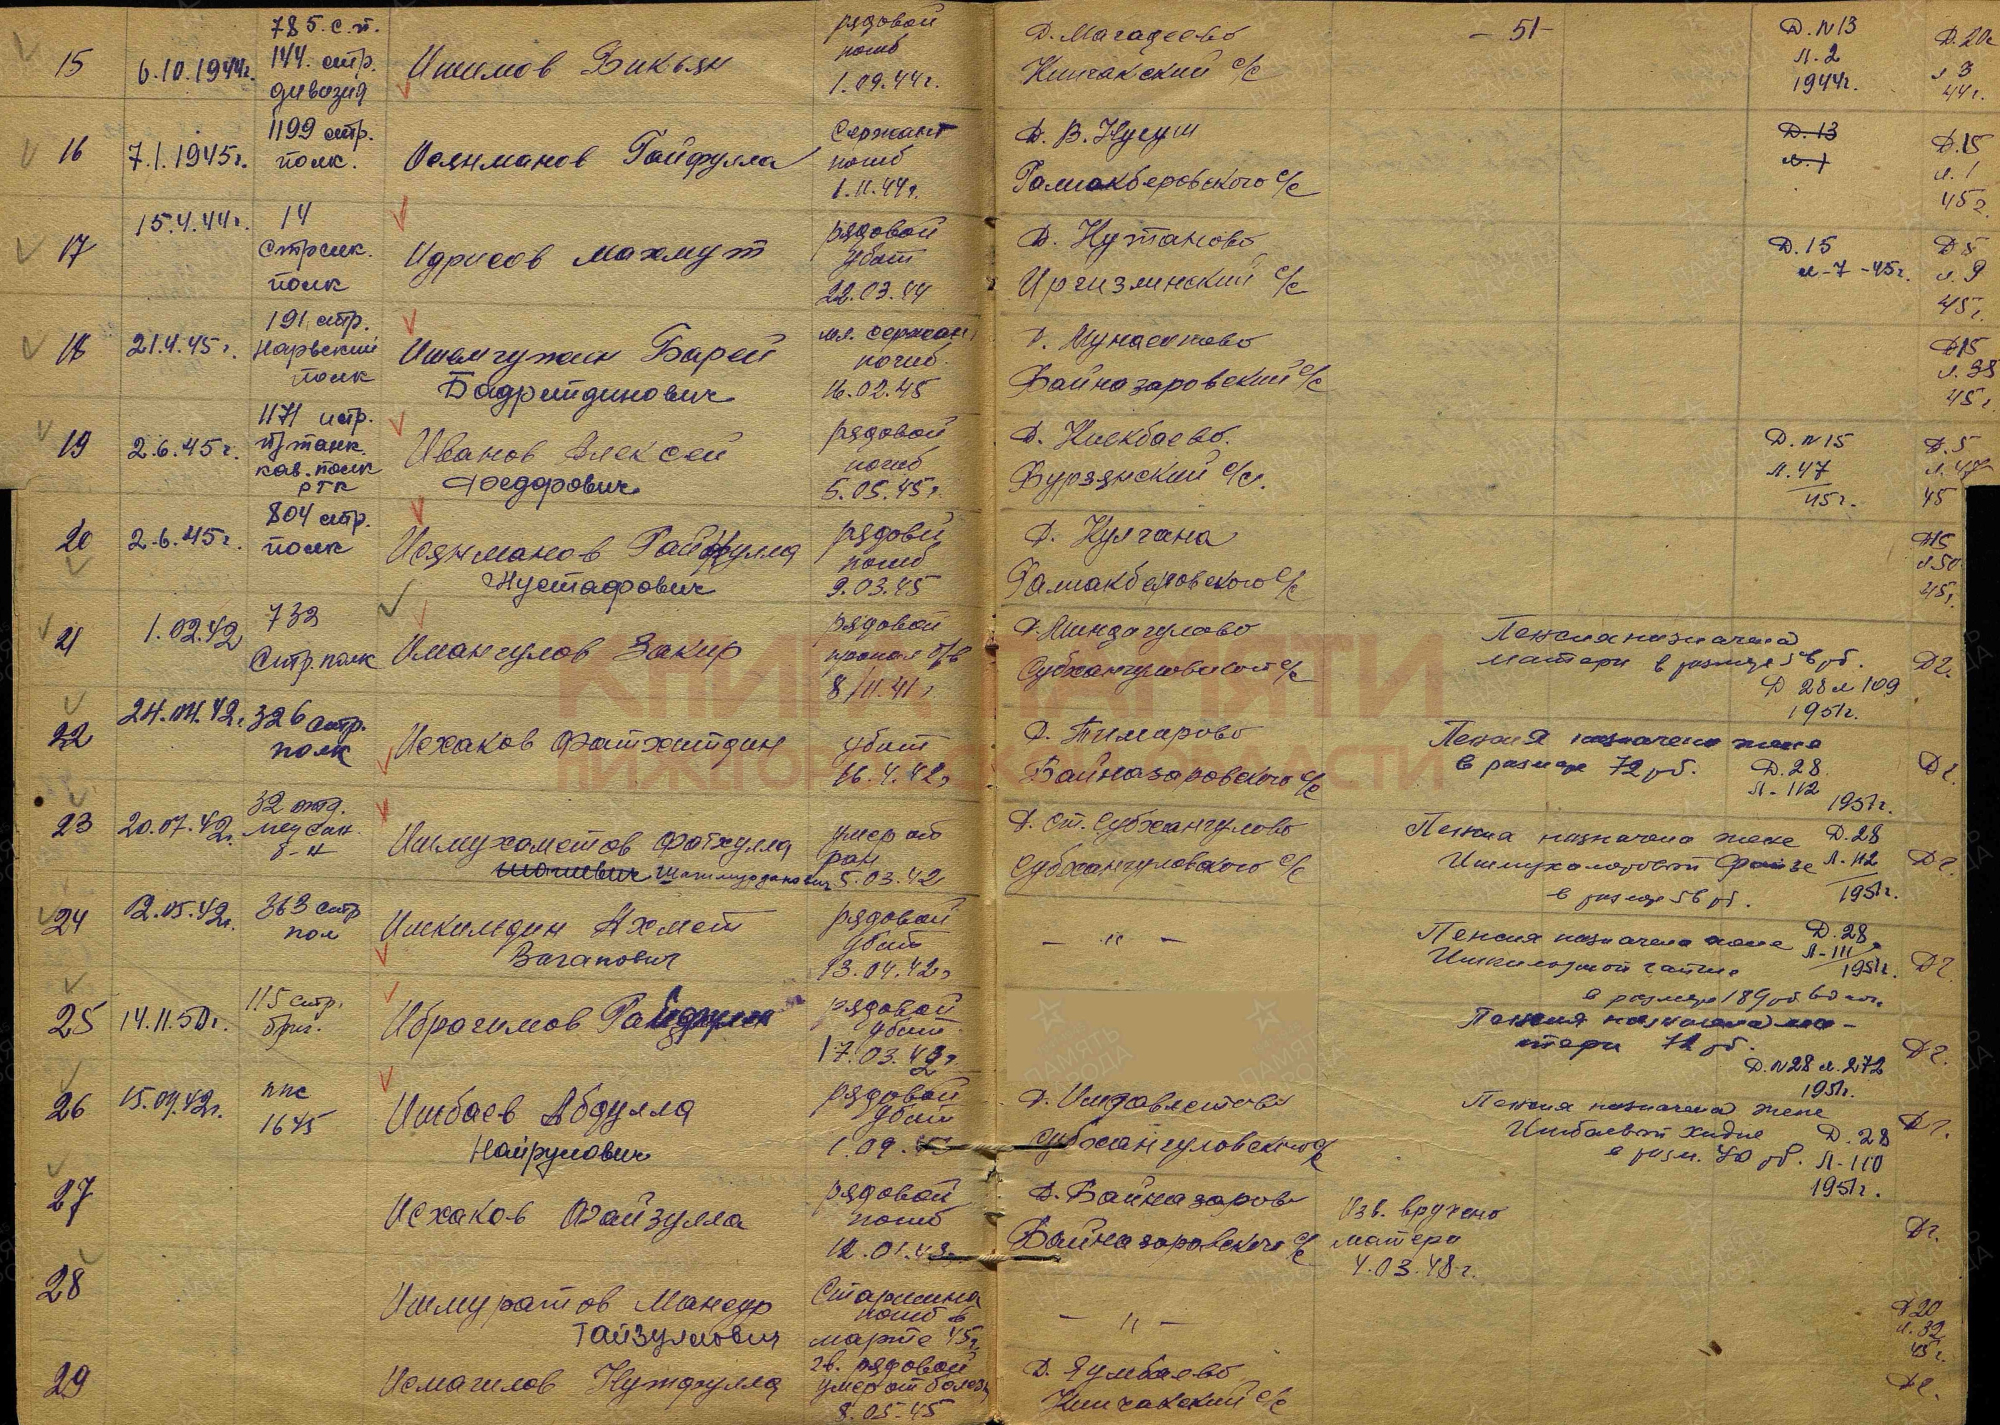 15 6.10.1944г. 785 с.п. 144 стр. дивизия Ишимов Бикьян рядовой погиб 1.09.44г. Д. Магадеево Кипчакский с/с -51- Д. №13 л. 2 1944г. Д. 20 л 3 44г.
16 7.1.1945г. 1199 стр. полк. Исянманов Гайфулла Сержант погиб 1.11.44г. Д. В. Нугуш Галиакберовского с/с Д. 13 л. 1 Д. 15 л. 1 45г.
17 15.4.44г. 14 Стрелк. полк Идрисов Махмут рядовой убит 22.03.44 Д. Кутаново Иргизлинский с/с Д. 15 л-7-45г. Д 5 л. 9 45г.
18 21.4.45г. 191 стр. Нарвский полк Ишемгужин Барей мл. сержант погиб.
Бадритдинович 16.02.45 Д. Мунасипово Байназаровский с/с Д15 л. 38 45г.
19 2.6.45г. 1171 кав. полк РГК Иванов Алексей
Федорович рядовой погиб 5.05.45г. Д. Киекбаево. Бурзянский с/с. Д. №15 Л. 47 45г. Д. 5 л. 47 45
20 2.6.45г. 804 стр. полк Исянманов Гайфулла
Мустафович рядовой погиб 9.03.45 Д. Кулгана Галиакберовского с/с Д15 л. 50 45г.
21 1.02.42 733 Стр. полк Имангулов Закир рядовой пропал б/в 8/11.41г Д. Миндагулово Субхангуловский с/с Пенсия назначена матери в размере 56 руб. Д 28 л 109 1951г. Д 2.
22 24.04.42г. 326 стр. полк Исхаков Фатхитдин убит 16.4.42г Д. Тимирово Байназаровского с/с Пенсия назначена жене в размере 72 руб. Д. 28. Л-112 1951г. Д 2
23 20.07.42г. 32 отд. мед сан. б-н Ишмухаметов Фатхулла
умер от ран 5.03.42 Д. ст. Субхангулово Субхангуловского с/с Пенсия назначена жене в размере 56 руб. Д. 28 Л-112 1951г. Д 2.
24 12.05.42г. 363 стр пол Ишкильдин Ахмет
Вагапович рядовой убит 13.04.42г - " - Пенсия назначена жене Д. 28 Л-111 1951г. Д 2
25 14.11.50г. 115 стр. бриг. Ибрагимов рядовой убит 17.03.42г. Пенсия назначена матери 72 руб. Д. №28 л. 272 1951г. Д 2.
26 15.09.42г. ппс 1645 Ишбаев Абдулла
рядовой убит 1.09. Субхангуловского с/с Пенсия назначена жене в разм. 70 руб. Д. 28 Л-110 1951г. Д 2.
27 Исхаков Файзулла рядовой погиб 12.01.43г Д. Байназарово Байназаровского с/с Изв. вручено матери 4.03.48г. Д2.
28 Ишмуратов Мансур
Гайзуллович Старшина погиб в марте 45г. - " - Д 20 л. 32 45г.
29 Исмагилов гв. рядовой умер от болезн 8.05.45 Д. Яумбаево Кипчакский с/с Д2.
КНИГА ПАМЯТИ
НИЖЕГОРОДСКОЙ ОБЛАСТИ
ПАМЯТЬ НАРОДА